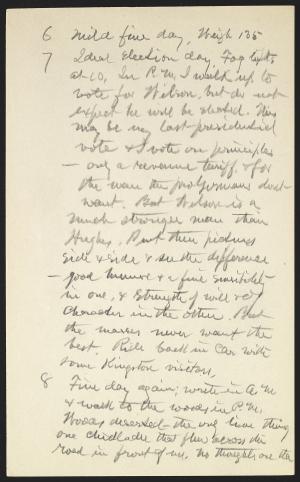 6 Mild fine day, Weigh 135
7 Ideal Election day, Fog lifts
at 10, In P.M. I walk up to
vote for Wilson, but do not
expect he will be elected. This
may be my last presidential
vote & I vote on principles
— only a revenue tariff, & for
the man the pro Germans dont
want. But Wilson is a
much stronger man than
Hughes. Put their pictures
side & side & see the difference
— good humor & a fine sensibility
in one, & strength of will &
character in the other. But
the masses never want the
best. Ride back in Car with
some Kingston visitors.
8 Fine day again; write in A.M
& walk to the woods in P.M.
Woods deserted — the only live thing
one chickadee that flew across the
road in front of me. No thoughts, one the